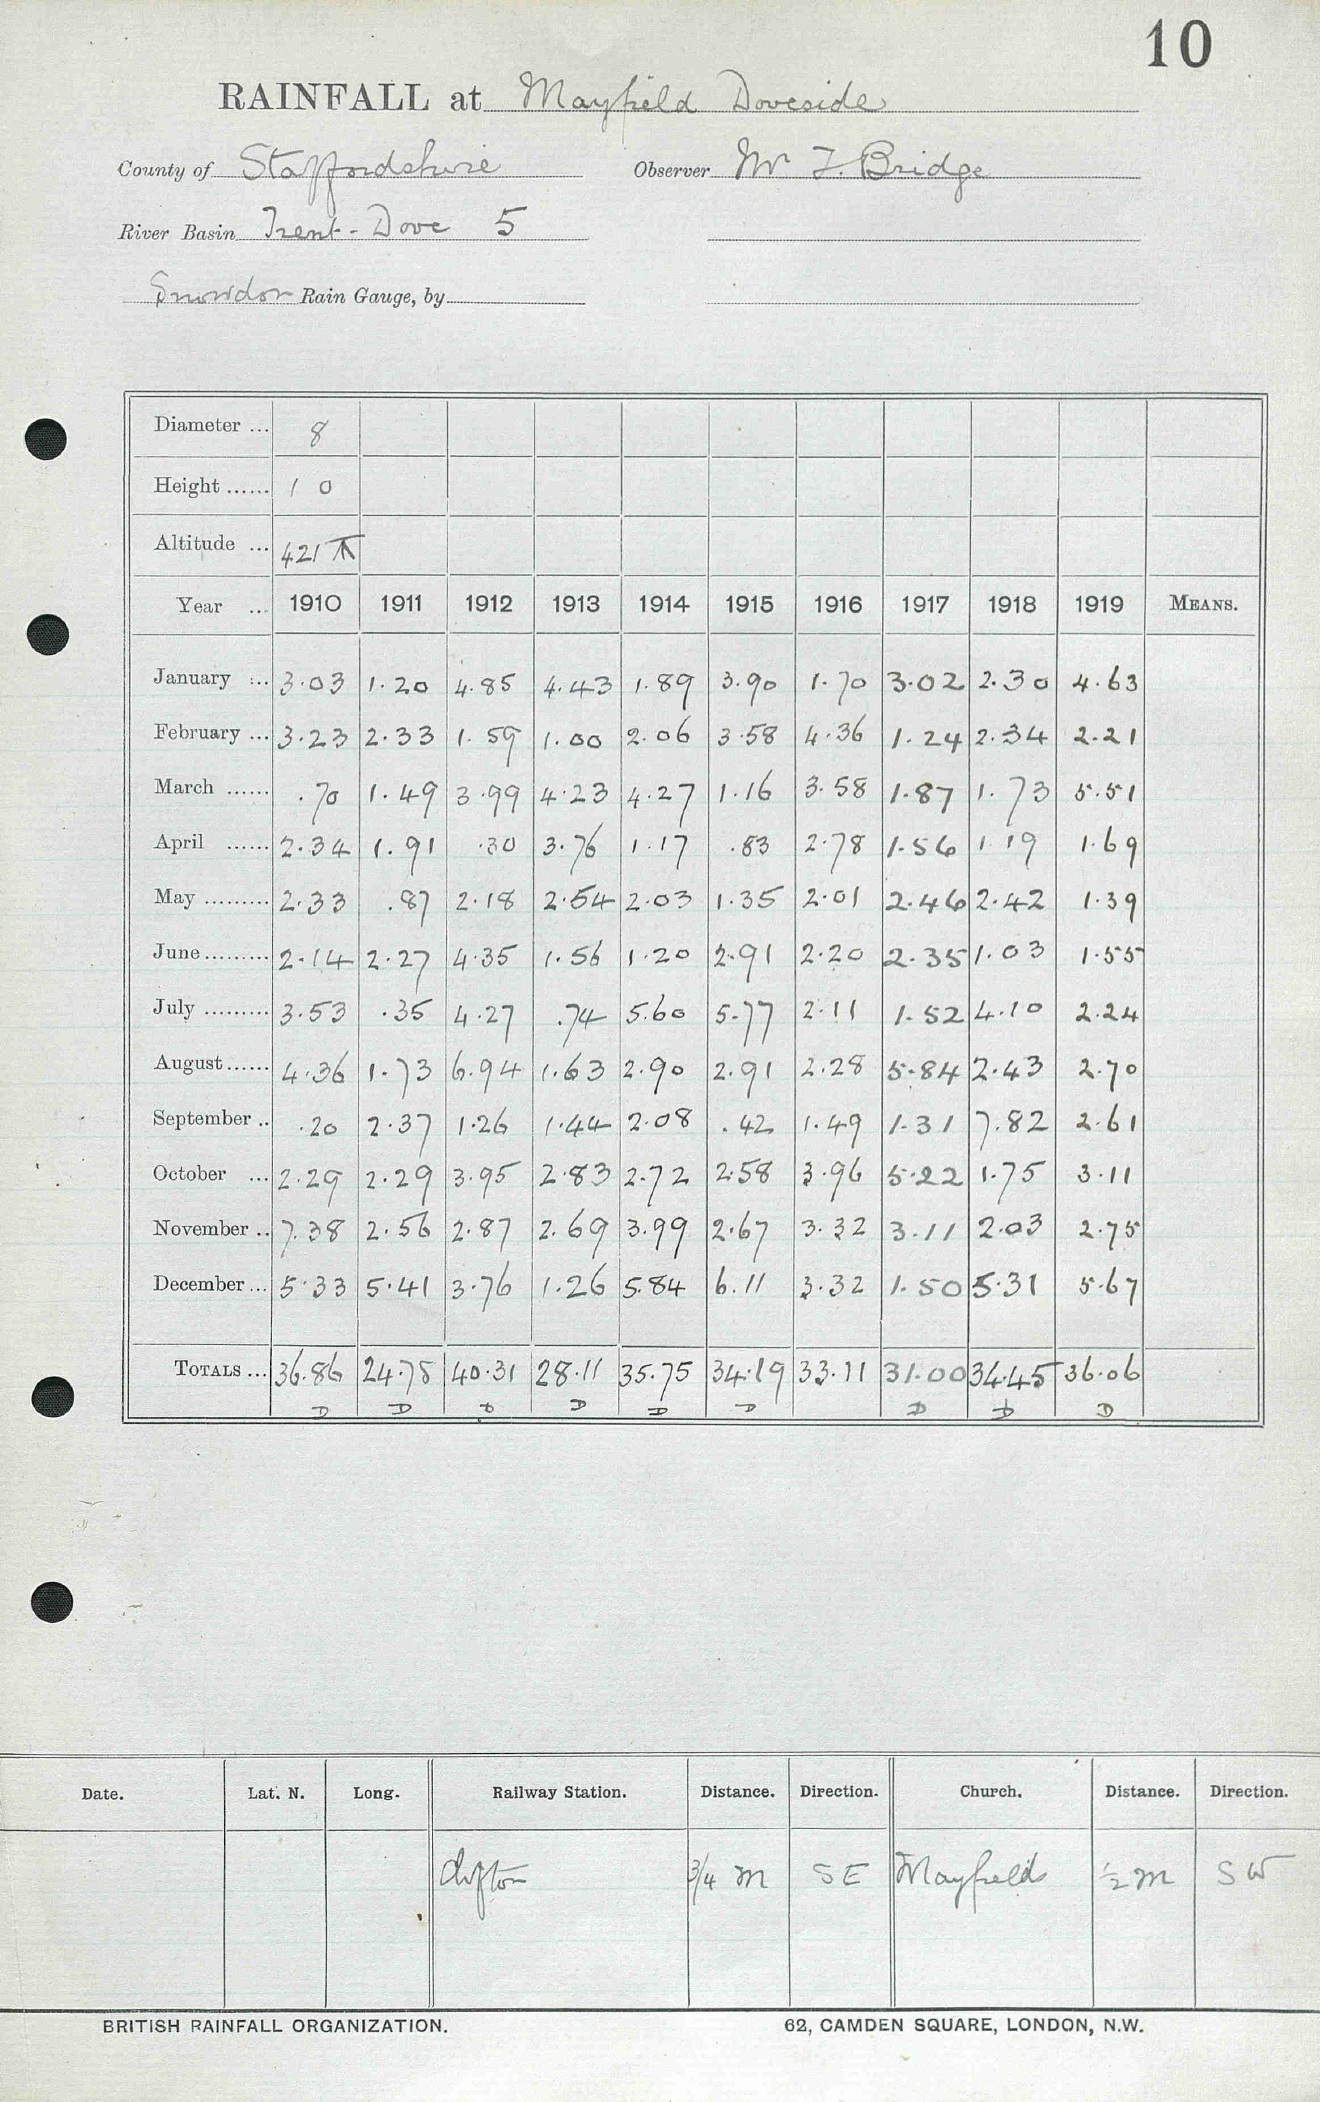 10
RAINFALL at Mayfield Doveside
County of Staffordshire Observer Mr T. Bridge
River Basin Trent-Dove 5
Snowdon Rain Gauge, by
Diameter ... 8
Height ...... 1 0
Altitude ... 421
Year ... 1910 1911 1912 1913 1914 1915 1916 1917 1918 1919 MEANS.
January ... 3.03 1.20 4.85 4.43 1.89 3.90 1.70 3.02 2.30 4.63
February ... 3.23 2.33 1.59 1.00 2.06 3.58 4.36 1.24 2.34 2.21
March ...... .70 1.49 3.99 4.23 4.27 1.16 3.58 1.87 1.73 5.51
April ...... 2.34 1.91 .30 3.76 1.17 .83 2.78 1.56 1.19 1.69
May ......... 2.33 .87 2.18 2.54 2.03 1.35 2.01 2.46 2.42 1.39
June ......... 2.14 2.27 4.35 1.56 1.20 2.91 2.20 2.35 1.03 1.55
July ......... 3.53 .35 4.27 .74 5.60 5.77 2.11 1.52 4.10 2.24
August ...... 4.36 1.73 6.94 1.63 2.90 2.91 2.28 5.84 2.43 2.70
September .. .20 2.37 1.26 1.44 2.08 .42 1.49 1.31 7.82 2.61
October ... 2.29 2.29 3.95 2.83 2.72 2.58 3.96 5.22 1.75 3.11
November .. 7.38 2.56 2.87 2.69 3.99 2.67 3.32 3.11 2.03 2.75
December ... 5.33 5.41 3.76 1.26 5.84 6.11 3.32 1.50 5.31 5.67
TOTALS ... 36.86 24.78 40.31 28.11 35.75 34.19 33.11 31.00 34.45 36.06
D D D D D D D D D
Date. Lat. N. Long. Railway Station. Distance. Direction. Church. Distance. Direction.
Clifton 3/4 m SE Mayfield 1/2 m SW
BRITISH RAINFALL ORGANIZATION. 62, CAMDEN SQUARE, LONDON, N.W.